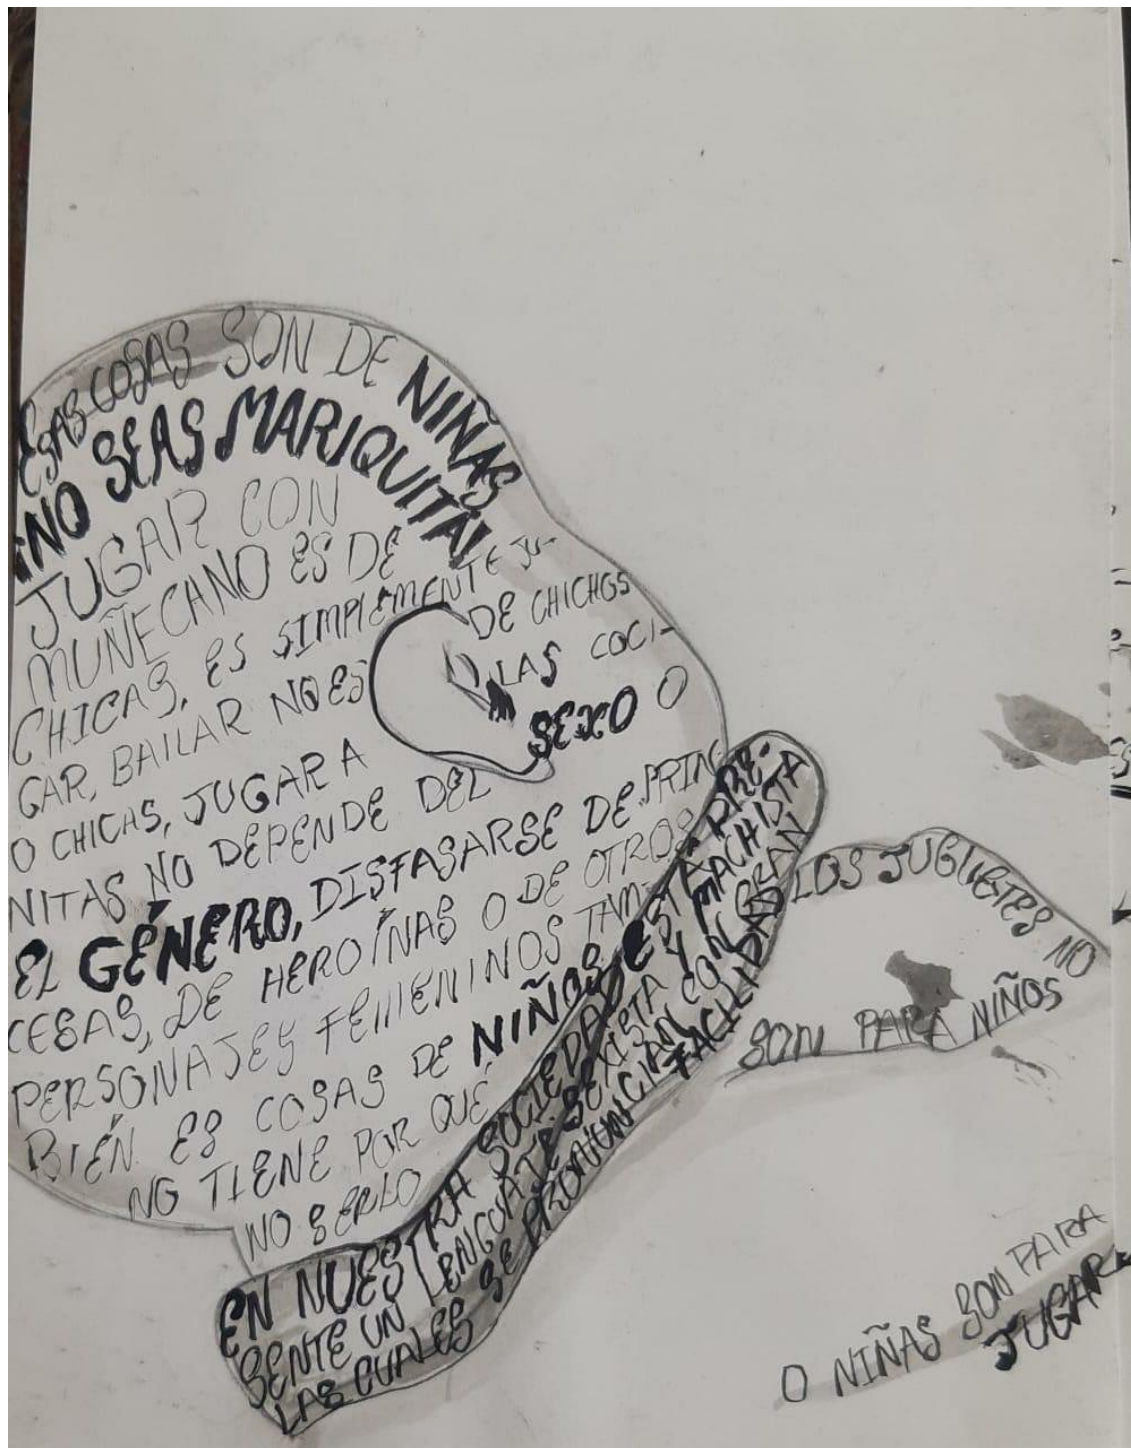 ESAS COSAS SON DE NIÑAS
¡NO SEAS MARIQUITA!
JUGAR CON
MUÑECANO ES DE
CHICAS, ES SIMPLEMENTE JU-
GAR, BAILAR NO ES DE CHICHOS
O CHICAS, JUGAR A LAS COCI-
NITAS NO DEPENDE DEL SEXO O
EL GÉNERO, DISFASARSE DE PRIN
CESAS, DE HEROÍNAS O DE OTROS
PERSONAJES FEMENINOS TAM-
BIÉN ES COSAS DE NIÑOS
NO TIENE POR QUÉ
NO SERLO
EN NUESTRA SOCIEDAD ESTÁ PRE-
SENTE UN LENGUATE SEXISTA Y MACHISTA
LAS CUALES SE PRONUNCIAN CON GRAN
FACILIDAD
LOS JUGUETES NO
SON PARA NIÑOS
O NIÑAS SON PARA
JUGAR